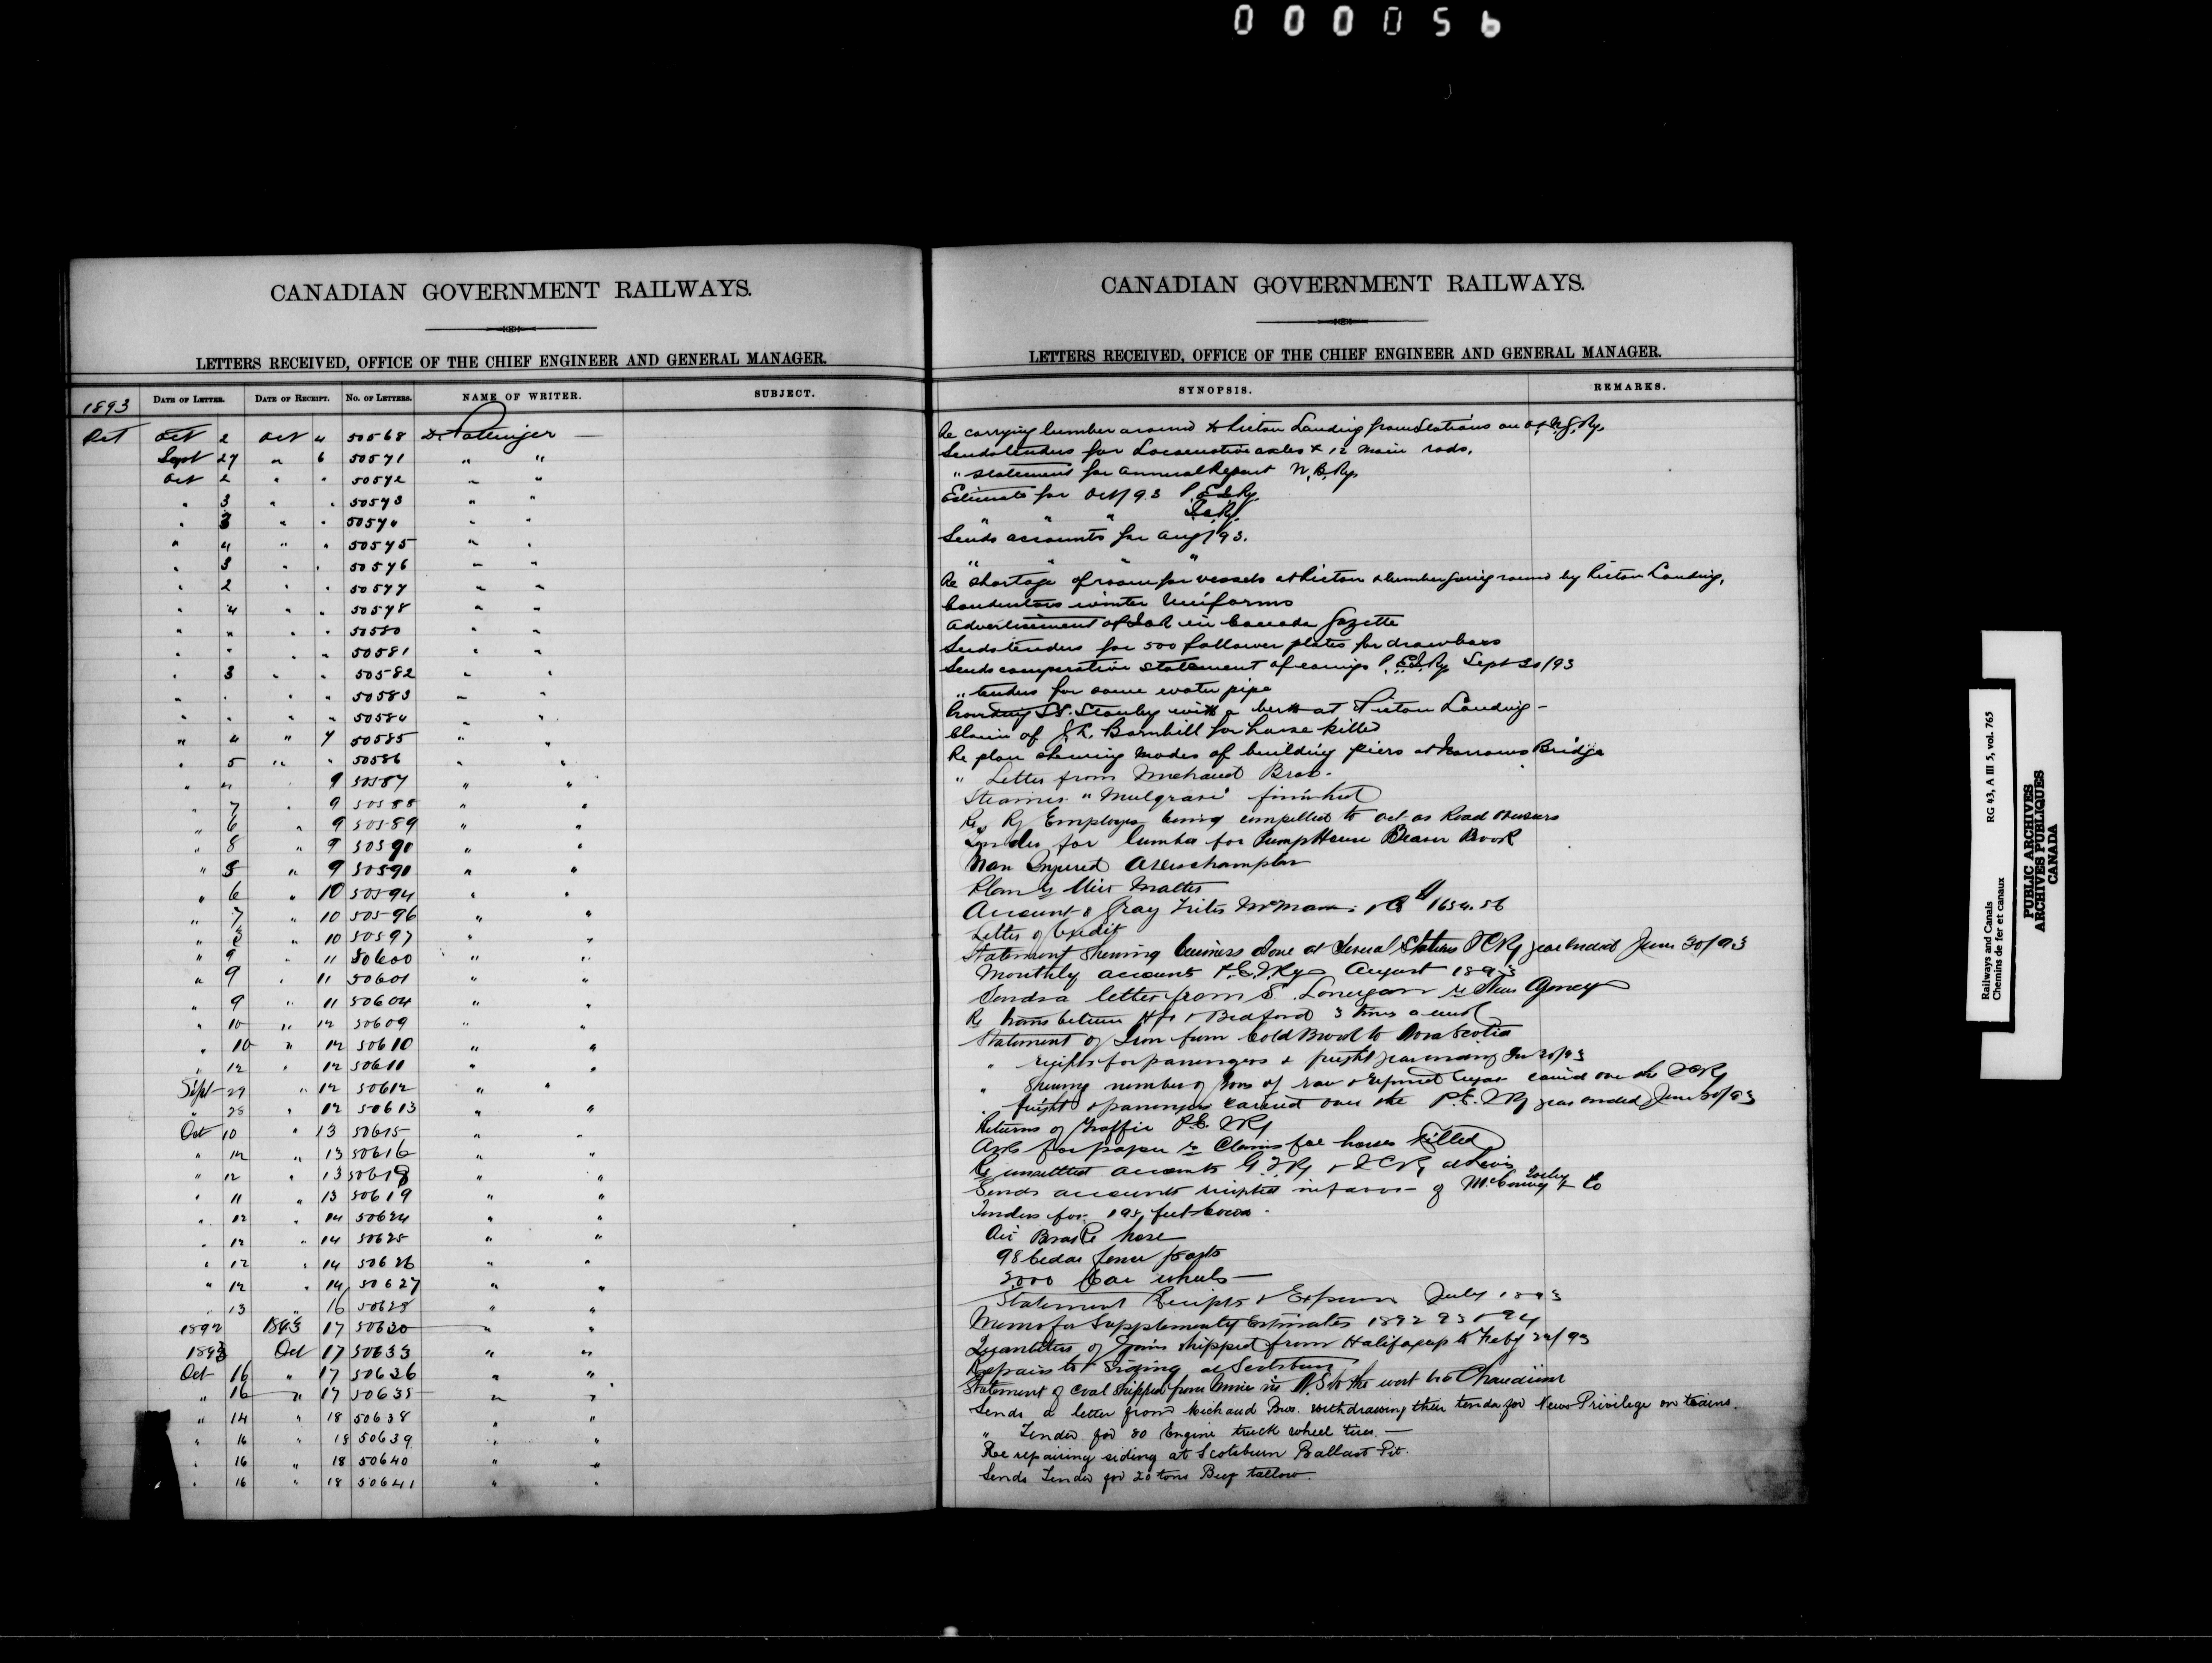 000056
CANADIAN GOVERNMENT RAILWAYS.
LETTERS RECEIVED, OFFICE OF THE CHIEF ENGINEER AND GENERAL MANAGER.
1893 DATE OF LETTER. DATE OF RECEIPT. No. OF LETTERS. NAME OF WRITER. SUBJECT.
Oct Oct 2 Oct 4 50568 D. Pottinger —
Sept 27 " 6 50571 " "
Oct 2 " " 50572 " "
" 3 " " 50573 " "
" 3 " " 50574 " "
" 4 " " 50575 " "
" 3 " " 50576 " "
" 2 " " 50577 " "
" 4 " " 50578 " "
" " " " 50580 " "
" " " " 50581 " "
" 3 " " 50582 " "
" " " " 50583 " "
" " " " 50584 " "
" 4 " 7 50585 " "
" 5 " " 50586 " "
" " 9 50587 " "
" 7 " 9 50588 " "
" 6 " 9 50589 " "
" 8 " 9 50590 " "
" 5 " 9 50590 " "
" 6 " 10 50594 " "
" 7 " 10 50596 " "
" " 10 50597 " "
" 9 " 11 50600 " "
" 9 " 11 50601 " "
" 9 " 11 50604 " "
" 10 " 12 50609 " "
" 10 " 12 50610 " "
" 12 " 12 50611 " "
Sept 29 " 12 50612 " "
" 28 " 12 50613 " "
Oct 10 " 13 50615 " "
" 12 " 13 50616 " "
" 12 " 13 50618 " "
" 11 " 13 50619 " "
" 12 " 14 50624 " "
" 12 " 14 50625 " "
" 12 " 14 50626 " "
" 12 " 14 50627 " "
" 13 " 16 50628 " "
1892 1893 17 50630 " "
1893 Oct 17 50633 " "
Oct 16 " 17 50636 " "
" 16 " 17 50635 " "
" 14 " 18 50638 " "
" 16 " 18 50639 " "
" 16 " 18 50640 " "
" 16 " 18 50641 " "
CANADIAN GOVERNMENT RAILWAYS.
LETTERS RECEIVED, OFFICE OF THE CHIEF ENGINEER AND GENERAL MANAGER.
SYNOPSIS. REMARKS.
Re carrying lumber around to Pictou Landing from Stations on
Sends tenders for Locomotive axles & 12 main rods.
" statement for annual Report W.B.Ry.
Estimate for Oct/93 P.E.I.Ry.
" " " I.C.Ry.
Sends accounts for Aug/93.
" " " "
Re shortage of room for vessels at Pictou & lumber going round by Pictou Landing.
Conductors winter Uniforms
Advertisement of ICR in Canada Gazette
Sends tenders for 500 follower plates for drawbars
Sends comparative statement of earnings P.E.I.Ry Sept 30/93
" tenders for some water pipe
Providing SS. Stanley with a berth at Pictou Landing -
Claim of J.R. Barnhill for horse killed
Re plan shewing modes of building piers at Narrows Bridge
" Letter from Michaud Bros.
Steamer "Mulgrave" finished
Re Ry Employes being compelled to act as Road Overseers
Tenders for lumber for Pump House Beaver Brook
Man Injured
Plan
Account Gray 1654.56
Letter of Credit
Statement Shewing business done at Several Stations ICRy year ended June 30/93
Monthly accounts P.E.I.Ry August 1893
Sends a letter from S. Lonergan re News Agency
Re trains between Hfx & Bedford 3 times a week
Statement of Iron from Cold Brook to Nova Scotia
" receipts for passengers & freight year ending 30/93
" Shewing number of tons of raw & refined sugar carried over the ICRy
" freight & passengers carried over the P.E.I.Ry year ended June 30/93
Returns of Traffic P.E.I.Ry
Asks for papers re Claims for horses killed
Re unsettled accounts G.T.Ry & I.C.Ry at Levis
Sends accounts receipted in favor of & Co
Tenders for 195 feet
Air Brake hose
98 cedar fence posts
2000 Car wheels —
Statement Receipts & Expenses July 1893
Memo for Supplementary Estimates 1892 93 & 94
Quantities of Grain shipped from Halifax up to Feby /93
Repairs to Siding at Scotsburn
Statement of Coal Shipped from N.S. to the west via Chaudiere
Sends a letter from Michaud Bros. withdrawing their tender for News Privilege on trains.
" Tender for 80 Engine truck wheel tires. —
Re repairing siding at Scotsburn Ballast Pit.
Sends Tender for 20 tons Beef tallow.
Railways and Canals RG 43, A III 5, vol. 765
Chemins de fer et canaux
PUBLIC ARCHIVES
ARCHIVES PUBLIQUES
CANADA